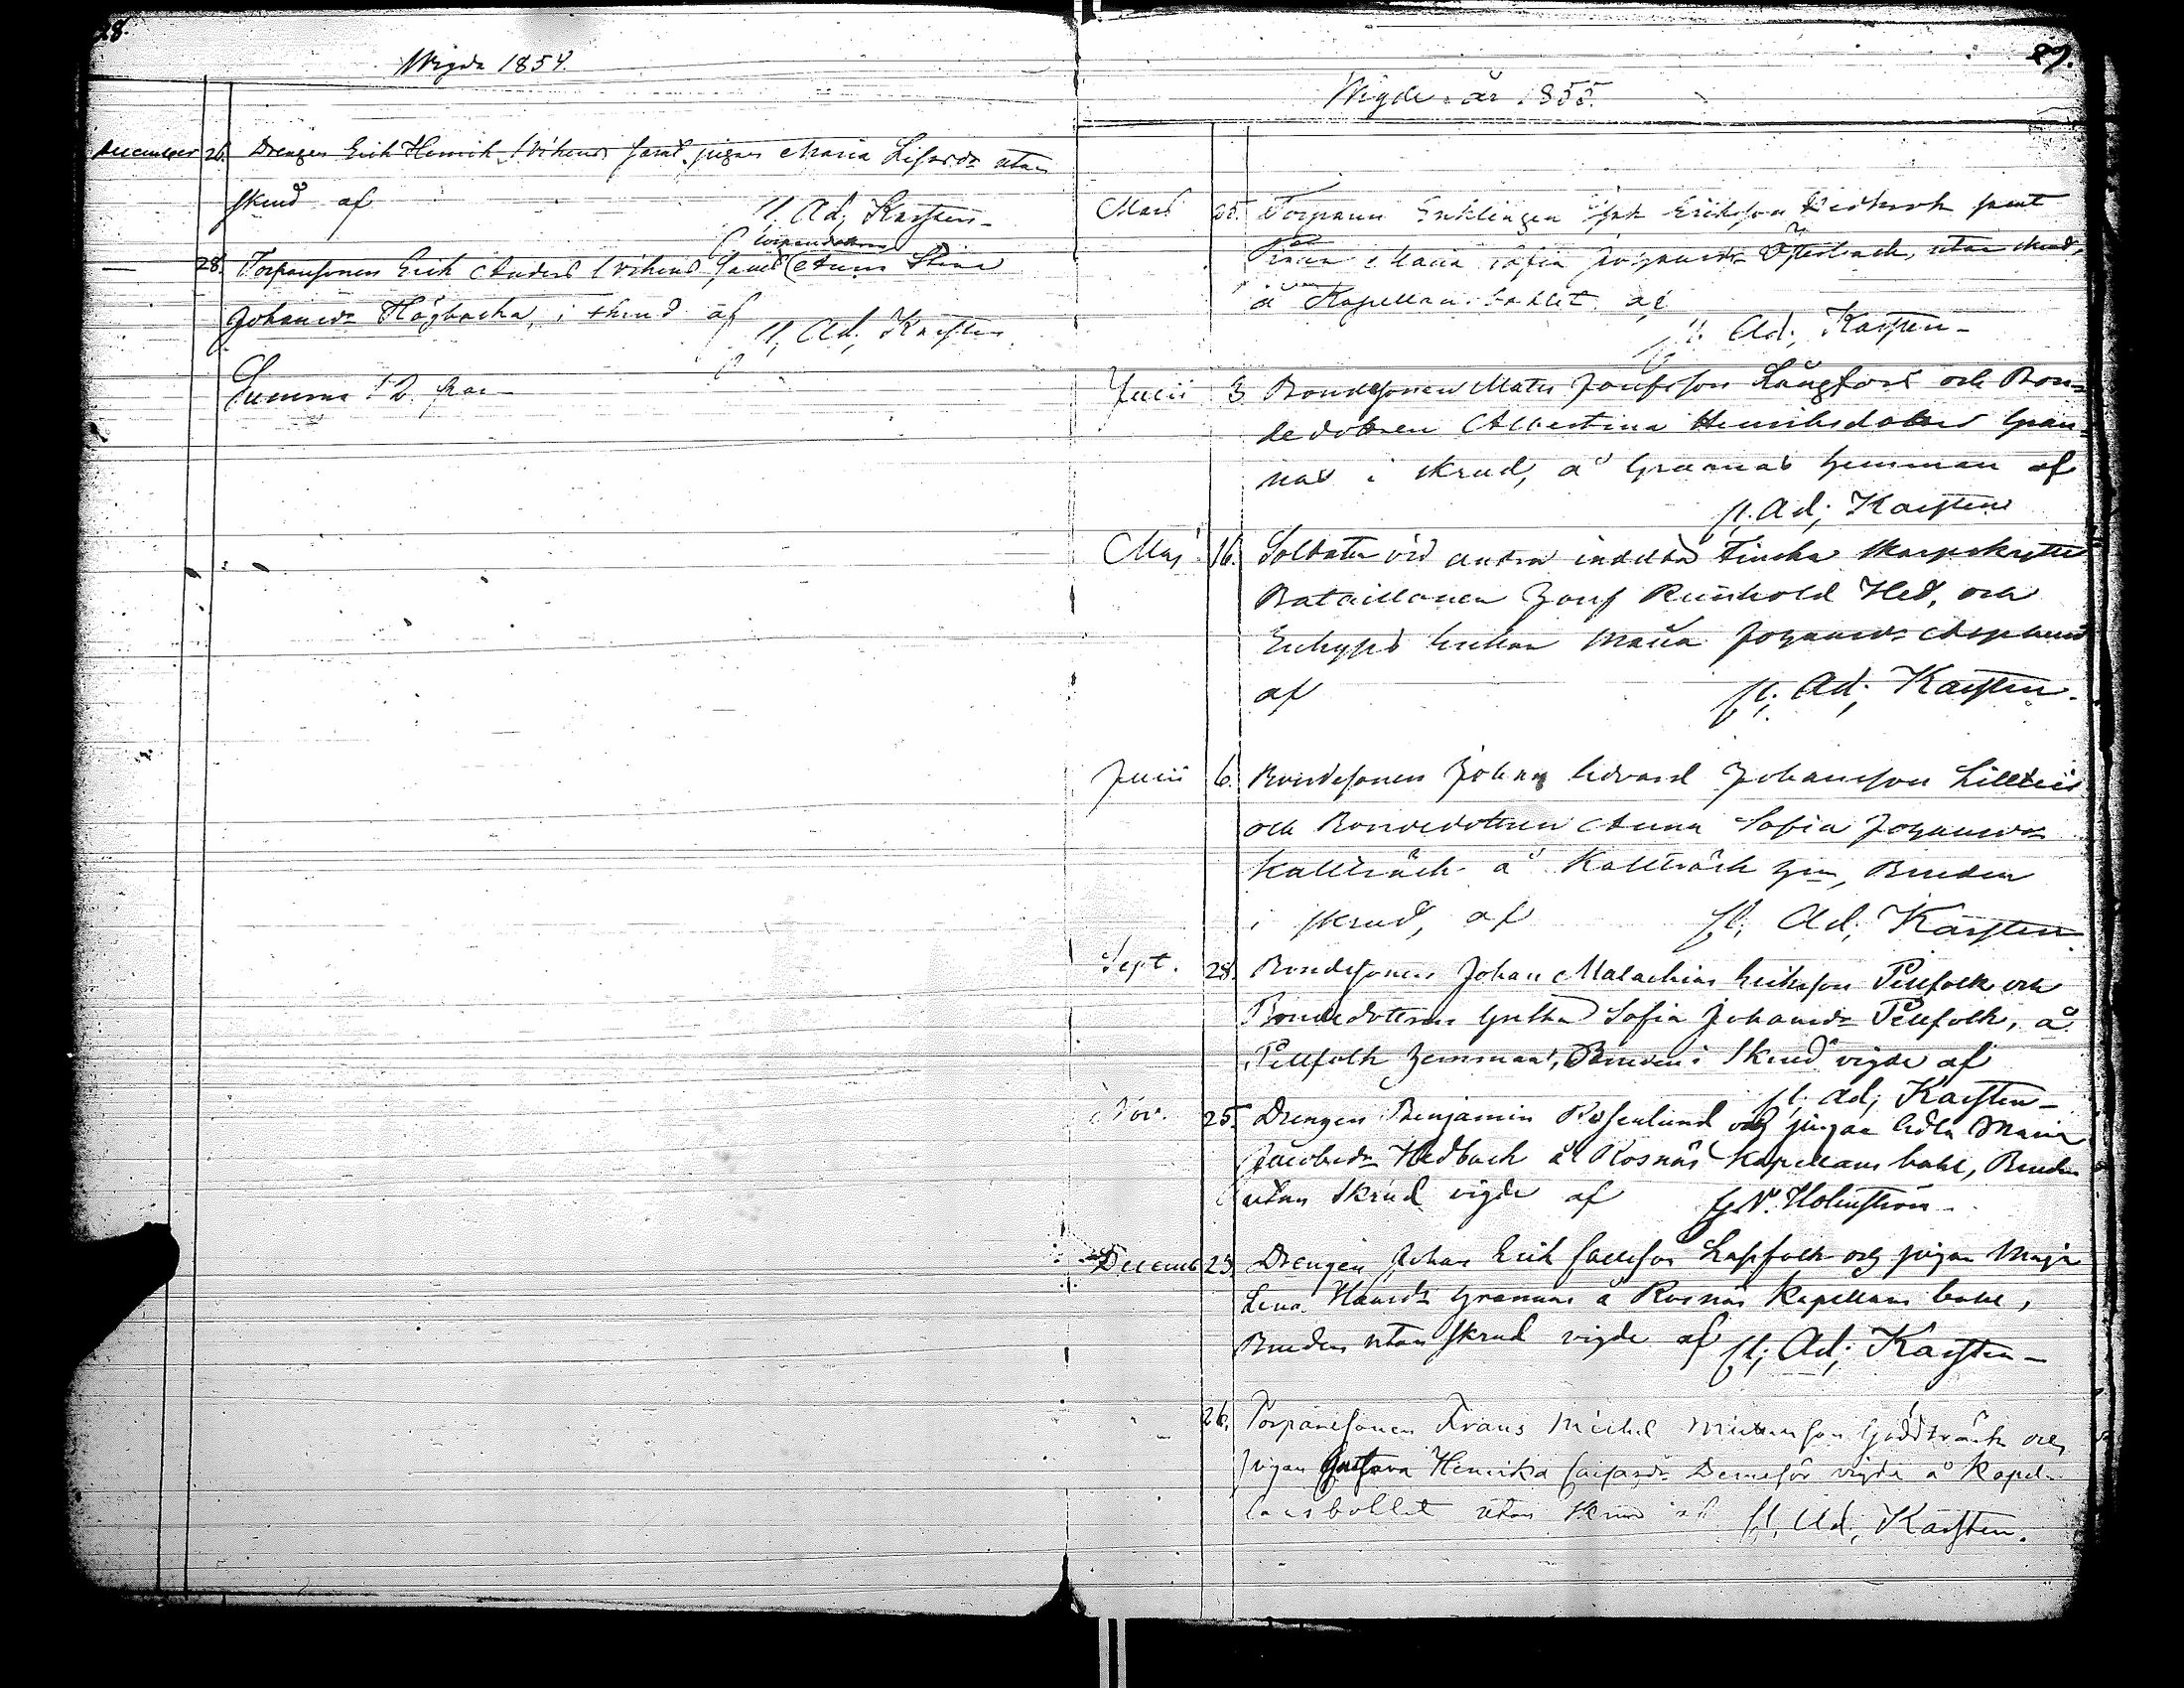 28.
Wigde 1854.
December 26. Drengen Erik Henrik Wikens samt pigan Maria Lisasdr utan
skrud af
fl. Adj. Karsten
torparedottren
— 28. Torparsonen Erik Anders Wikens, samt Anna Stina
Johansdr Högbacka, i skrud af
fl. Adj. Karsten
Summa 12 par
87.
Wigde år 1855.
Mars 25. Torparen Enklingen Isak Eriksson samt
Pigan Maria Sofia Johansdr Österback, utan skrud,
å Kapellansbohlet af
fl. Adj. Karsten
Junii 3. Bondesonen Mats Josefsson Långfors och Bon-
dedottren Albertina Henriksdotter Gran-
näs i skrud, å Grannäs hemman af
fl. Adj. Karsten
Maj 16. Soldaten vid andra indelta Finska Skarpskytte
Bataillonen Josef Reinhold Hed, och
Maria Johansdr Asplund
af fl. Adj. Karsten.
Junii 6. Bondesonen Johan Edvard Johansson
och Bondedottren Anna Sofia Johansdr
Kallträsk å Kallträsk hm, Bruden
i skrud, af fl. Adj. Karsten.
Sept. 28. Bondesonen Johan Malachias Eriksson Pellfolk och
Bondedottren Greta Sofia Johansdr Pellfolk, å
Pellfolk hemman, Bruden i Skrud vigde af
fl. Adj. Karsten
Nov. 25. Drengen Benjamin Rosenlund och pigan Edla Maria
Jacobsdr Hedback å Rosnäs Kapellans bohl, Bruden
utan Skrud vigde af G.N. Holmström
Decemb 25. Drengen Johan Erik Lappfolk och pigan Maja
Lena Hansdr Grannäs å Rosnäs Kapellans bohl,
Bruden utan skrud vigde af fl. Adj. Karsten
26. Torparesonen Frans Mickel Mickelsson Gäddträsk och
pigan Gustava Henrika vigde å Kapel-
lansbohlet utan skrud af fl. Adj. Karsten.